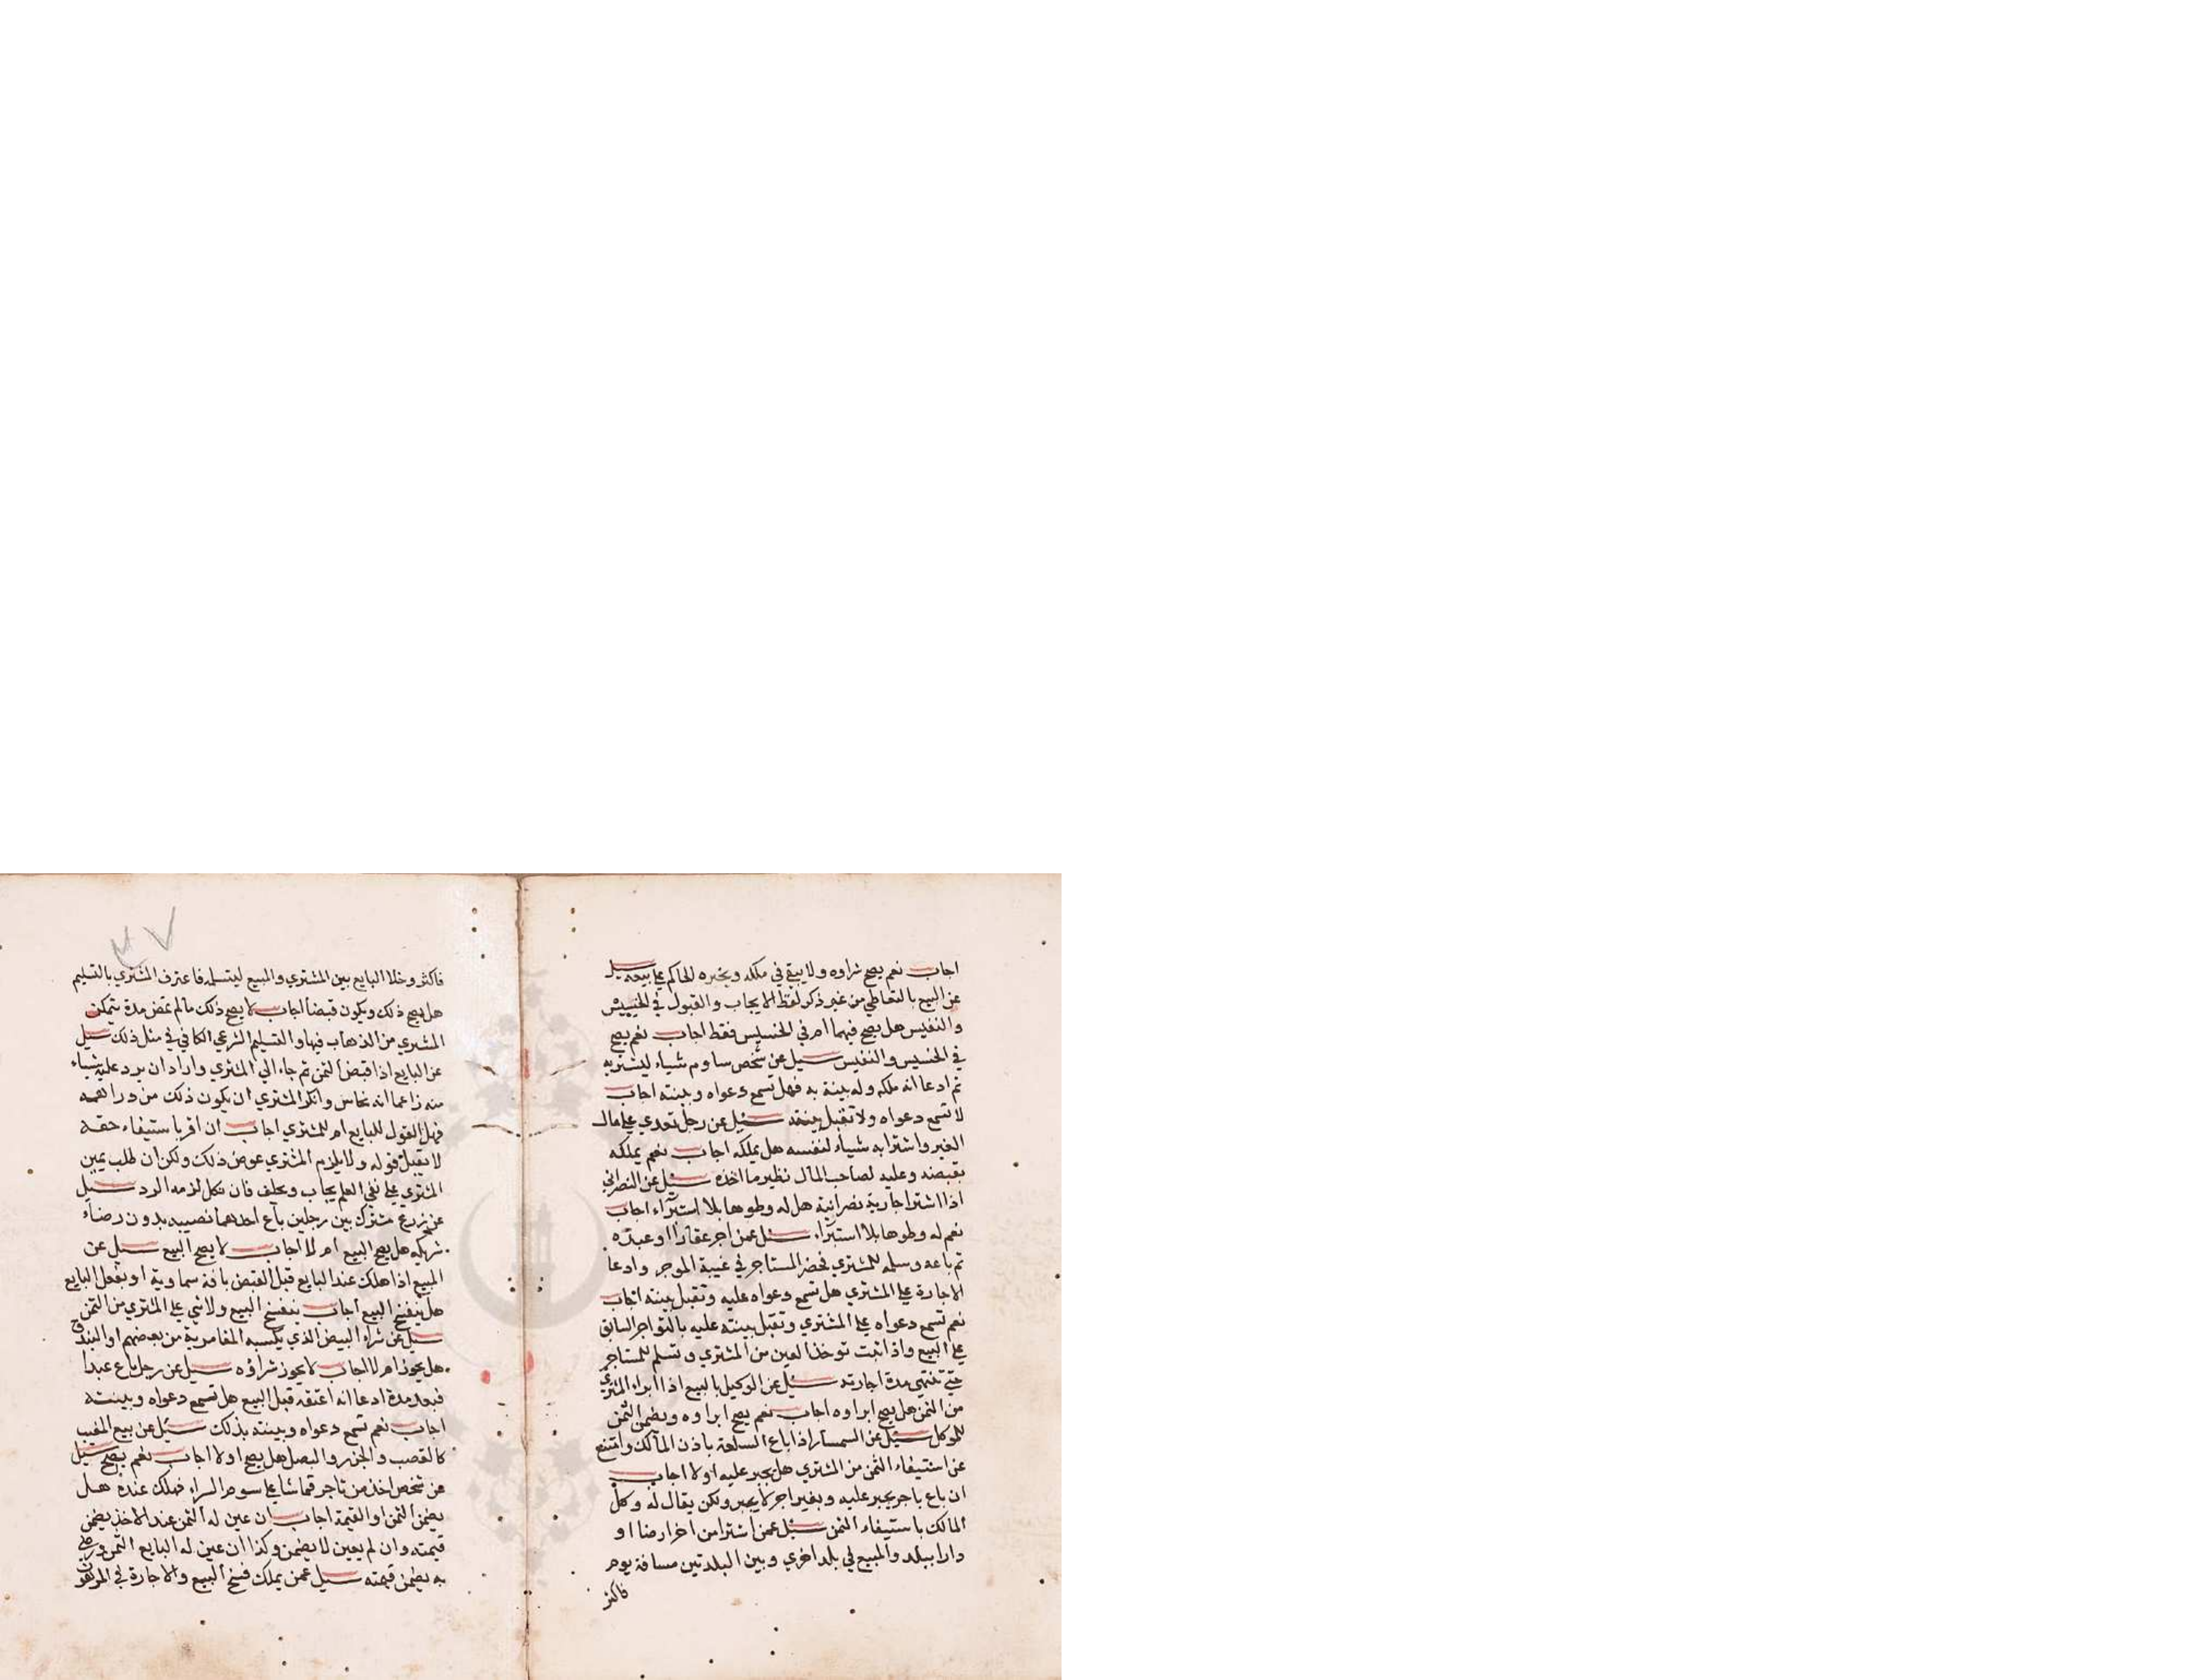 اجاب نعم يصح شراوه ولا يبقي في ملكه ويجبره الحاكم علي بيعه سيل
عن البيع بالتعاطي من غير ذكر لفظ الايجاب والقبول في الخسيس
والنفيس هل يصح فيهما ام في الخسيس فقط اجاب نعم يصح
في الخسيس والنفيس سيل عن شخص ساوم شياء ليشتريه
ثم ادعا انه ملكه وله بينة به فهل تسمع دعواه وبينته اجاب
لا تسمع دعواه ولا تقبل بينته سئيل عن رجل تعدي علي مال
الغير واشترا به شياء لنفسه هل يملكه اجاب نعم يملكه
بقبضه وعليه لصاحب المال نظير ما اخذه سئيل عن النصراني
اذا اشترا جارية نصرانية هل له وطوها بلا استبراء اجاب
نعم له وطوها بلا استبراء سئيل عمن اجر عقارا او عبده
ثم باعه وسلمه للمشتري فحضر المستاجر في غيبة الموجر وادعا
الاجارة علي المشتري هل تسمع دعواه عليه وتقبل بينته اجاب
نعم تسمع دعواه علي المشتري وتقبل بينته عليه بالتواجر السابق
علي البيع واذا ثبت توخذ العين من المشتري وتسلم للمستاجر
حتي تنتهي مدة اجارته سئيل عن الوكيل بالبيع اذا ابراء المشتري
من الثمن هل يصح ابراوه اجاب نعم يصح ابراوه ويضمن الثمن
للموكل سئيل عن السمسار اذا باع السلعة باذن المالك وامتنع
عن استيفاء الثمن من المشتري هل يجبر عليه اولا اجاب
ان باع باجر يجبر عليه وبغير اجر لا يجبر ولكن يقال له وكل
المالك باستيفاء الثمن سئيل عمن اشترا من اخر ارضا او
دارا ببلد والمبيع في بلد اخري وبين البلدتين مسافة يوم
فاكثر
فاكثر وخلا البايع بين المشتري والمبيع ليتسلمه فاعترف المشتري بالتسليم
هل يصح ذلك ويكون قبضا اجاب لا يصح ذلك مالم تمض مدة يتمكن
المشتري من الذهاب فيها والتسليم الشرعي الكافي في مثل ذلك سيل
عن البايع اذا قبض الثمن ثم جاء الي المشتري واراد ان يرد عليه شياء
منه زاعما انه نحاس وانكر المشتري ان يكون ذلك من دراهمه
فهل القول للبايع ام للمشتري اجاب ان اقر باستيفاء حقه
لا يقبل قوله ولا يلزم المشتري عوض ذلك ولكن ان طلب يمين
المشتري علي نفي العلم يجاب ويحلف فان نكل لزمه الرد سيل
عن زرع مشترك بين رجلين باع احدهما نصيبه بدون رضاء
شريكه هل يصح البيع ام لا اجاب لا يصح البيع سيل عن
المبيع اذا هلك عند البايع قبل القبض بافة سماوية او بفعل البايع
هل ينفسخ البيع اجاب ينفسخ البيع ولا شي علي المشتري من الثمن
سيل عن شراء البيض الذي يكسبه المقامرية من بعضهم او البندق
هل يجوز ام لا اجاب لا يجوز شراؤه سيل عن رجل باع عبدا
فبعد مدة ادعا انه اعتقه قبل البيع هل تسمع دعواه وبينته
اجاب نعم تسمع دعواه وبينته بذلك سئيل عن بيع المغيب
كالقصب والجزر والبصل هل يصح اولا اجاب نعم يصح سيل
عن شخص اخذ من تاجر قماشا علي سوم الشراء فهلك عنده هل
يضمن الثمن او القيمة اجاب ان عين له الثمن عند الاخذ يضمن
قيمته وان لم يعين لا يضمن وكذا ان عين له البايع الثمن ورضي
به يضمن قيمته سيل عمن يملك فسخ البيع والاجارة في الموقوف